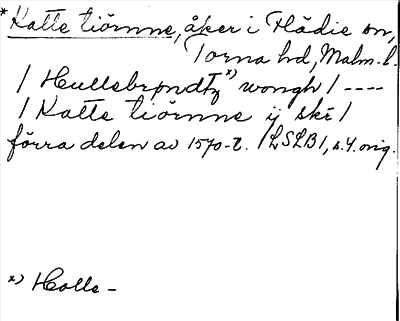 * Katte tiörnne, åker i Flädie sn,
Torna hd, Malm. l.
/ Hullebrøndtz *) wongh / ----
/ Katte tiörnne ij skr /
förra delen av 1570-t. / LSLB /, s. 4. orig.
*) Holle -